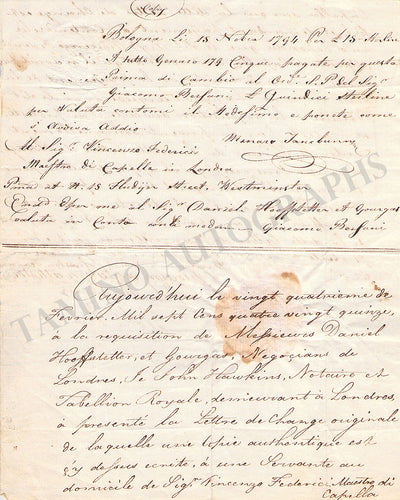 Copy
Bologna Li 15 Nobre 1794 Per £15 Sterline
A tutto Genaro 179 Cinque pagate per questa
Prima di Cambio al Ordi. S.P. del Sigr
Giacomo Bassani L Quindici Sterline
per Valuta contomi il Medesimo e ponete come
Addio
Al Sigr. Vincenzo Federici
Maestro di Capella in Londra
Pima at No. 15 Street, Westminster
me al Sigr Daniel Hoffstetter & Gourgas
valuta in Conto
Giacomo Bassani
TAMINO AUTOGRAPHS
Aujourd'hui le vingt quatrieme de
Fevrier, Mil sept Cens quatre vingt quinze,
à la requisition de Messieurs Daniel
Hoffstetter, et Gourgas, Negoçians de
Londres, Je John Hawkins, Notaire et
Tabellion Royale, demeurant à Londres,
à presenté la Lettre de Change originale
de laquelle une copie authentique est
çy dessus ecrite, à une Servante au
domicile de Sigr. Vincenzo Federici Maestro di
Capella